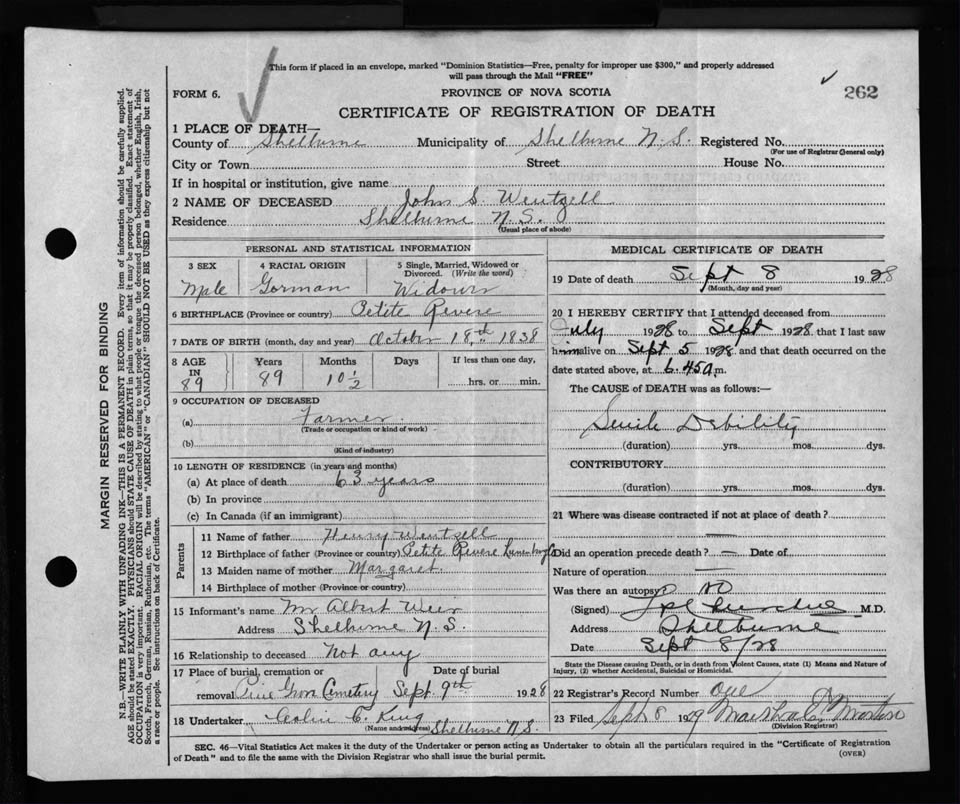 This form if placed in an envelope, marked "Dominion Statistics—Free, penalty for improper use $300," and properly addressed
will pass through the Mail "FREE"
FORM 6.
PROVINCE OF NOVA SCOTIA
262
CERTIFICATE OF REGISTRATION OF DEATH
1 PLACE OF DEATH—
County of Shelburne Municipality of Shelburne N.S. Registered No.
(For use of Registrar General only)
City or Town Street House No.
If in hospital or institution, give name
2 NAME OF DECEASED John S. Wentzell
Residence Shelburne N.S.
(Usual place of abode)
PERSONAL AND STATISTICAL INFORMATION
3 SEX 4 RACIAL ORIGIN 5 Single, Married, Widowed or
Divorced. (Write the word)
Male German Widower
6 BIRTHPLACE (Province or country) Petite Revere
7 DATE OF BIRTH (month, day and year) October 18th 1838
8 AGE Years Months Days If less than one day,
IN
89 89 10½ hrs. or min.
9 OCCUPATION OF DECEASED
(a) Farmer
(Trade or occupation or kind of work)
(b)
(Kind of industry)
10 LENGTH OF RESIDENCE (in years and months)
(a) At place of death 63 years
(b) In province
(c) In Canada (if an immigrant)
Parents
11 Name of father Henry Wentzell
12 Birthplace of father (Province or country) Petite Revere
13 Maiden name of mother Margaret
14 Birthplace of mother (Province or country)
15 Informant's name Mr Albert Weir
Address Shelburne N.S.
16 Relationship to deceased Not any
17 Place of burial, cremation or Date of burial
removal Pine Grove Cemetery Sept. 9th 1928
18 Undertaker Colin C. King
(Name and address) Shelburne N.S.
MEDICAL CERTIFICATE OF DEATH
19 Date of death Sept 8 1928
(Month, day and year)
20 I HEREBY CERTIFY that I attended deceased from
July 1928 to Sept 1928, that I last saw
him alive on Sept 5 1928 and that death occurred on the
date stated above, at 6.45 a.m.
The CAUSE of DEATH was as follows:—
Senile Debility
(duration) yrs. mos. dys.
CONTRIBUTORY
(duration) yrs. mos. dys.
21 Where was disease contracted if not at place of death?
—
Did an operation precede death? — Date of
Nature of operation —
Was there an autopsy? NO
(Signed) M.D.
Address Shelburne
Date Sept 8/28
State the Disease causing Death, or in death from Violent Causes, state (1) Means and Nature of
Injury, (2) whether Accidental, Suicidal or Homicidal.
22 Registrar's Record Number One
23 Filed Sept 8 1929 Morton
(Division Registrar)
SEC. 46—Vital Statistics Act makes it the duty of the Undertaker or person acting as Undertaker to obtain all the particulars required in the "Certificate of Registration
of Death" and to file the same with the Division Registrar who shall issue the burial permit.
(OVER)
MARGIN RESERVED FOR BINDING
N.B.—WRITE PLAINLY WITH UNFADING INK—THIS IS A PERMANENT RECORD. Every item of information should be carefully supplied.
AGE should be stated EXACTLY. PHYSICIANS should STATE CAUSE OF DEATH in plain terms, so that it may be properly classified. Exact statement of
OCCUPATION is very important. RACIAL ORIGIN will be described by stating to what people or tongue the deceased person belonged, whether English, Irish,
Scotch, French, German, Russian, Ruthenian, etc. The terms "AMERICAN" or "CANADIAN" SHOULD NOT BE USED as they express citizenship but not
a race or people. See instructions on back of Certificate.